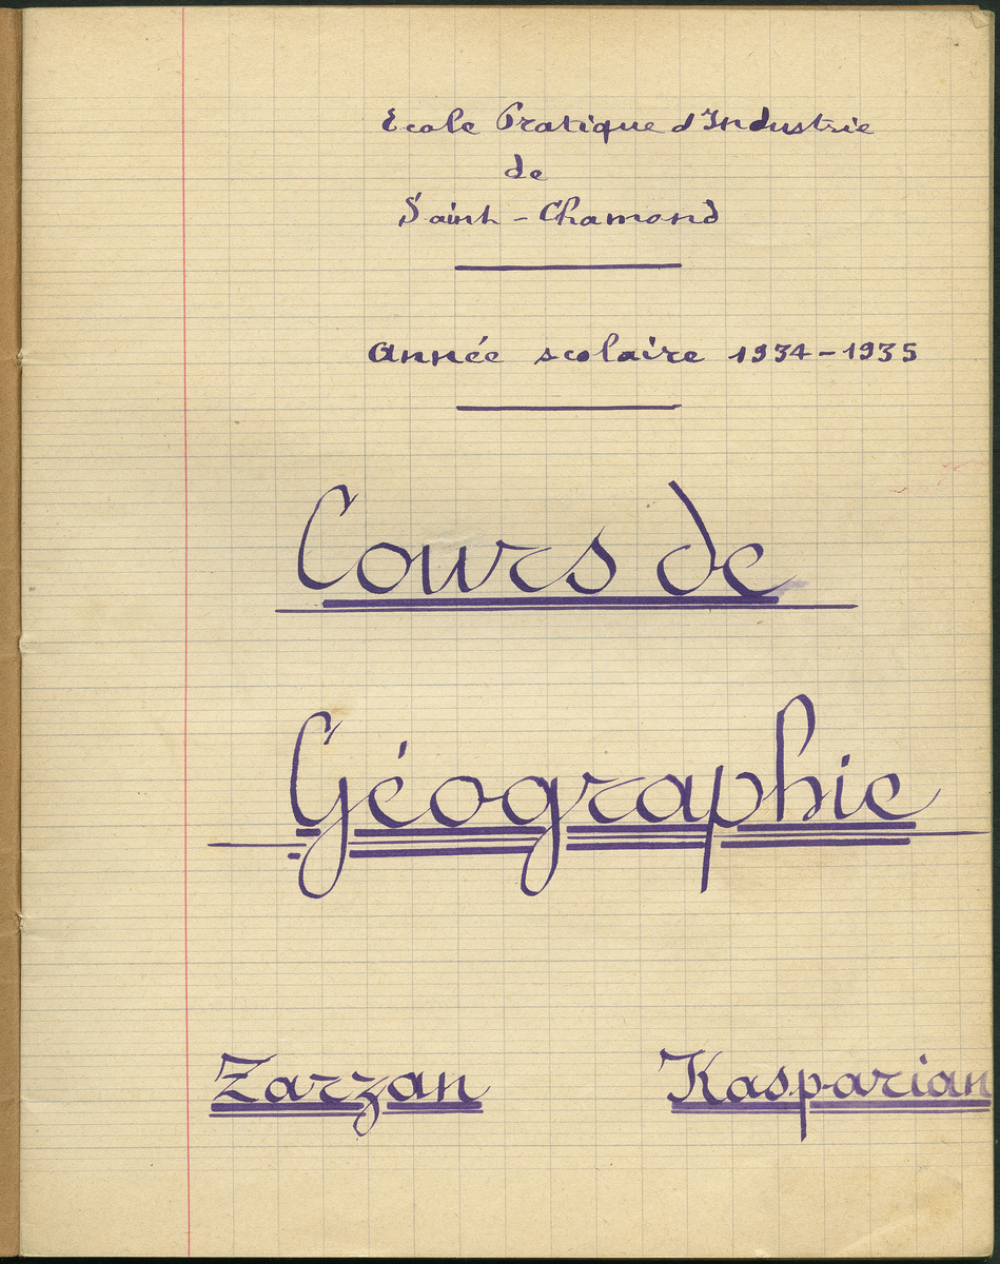 Ecole Pratique d'Industrie
de
Saint-Chamond
Année scolaire 1934-1935
Cours de
Géographie
Zarzan Kasparian